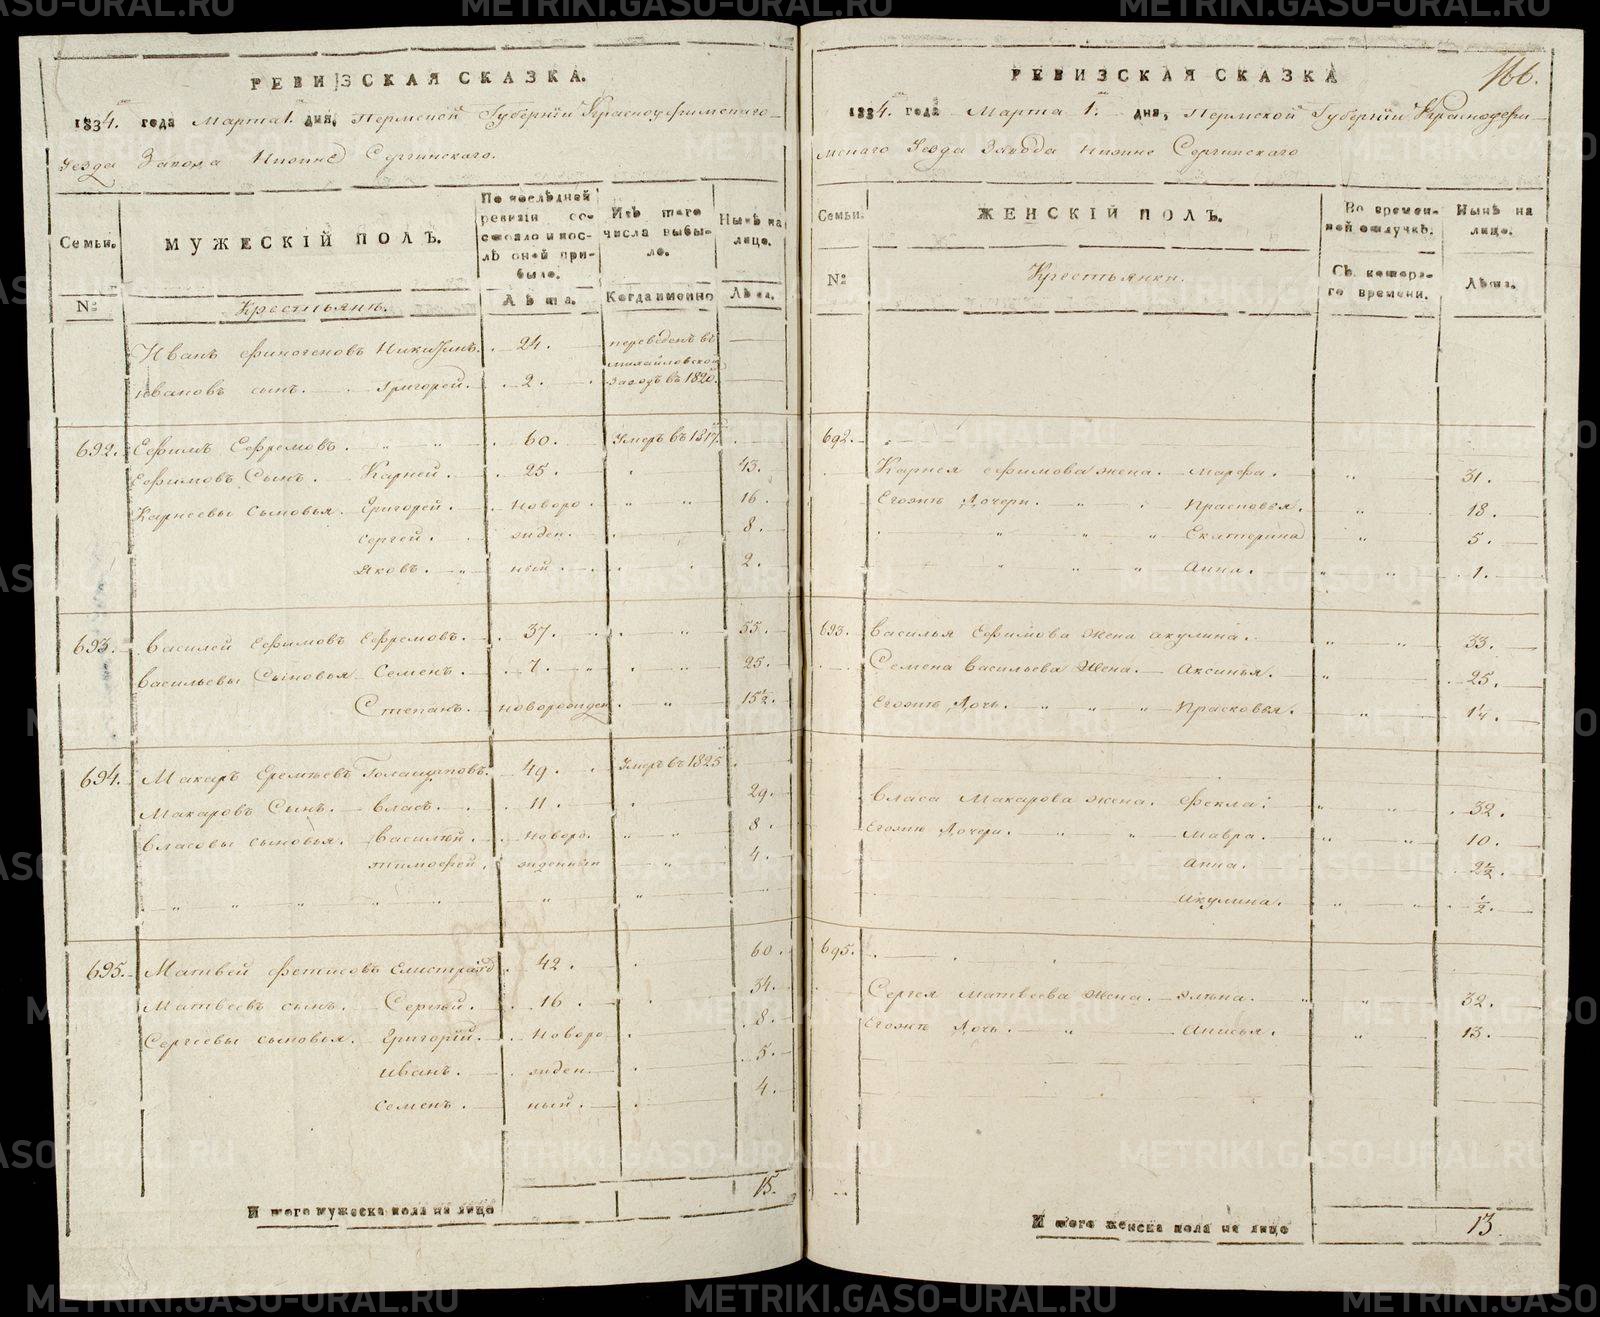 РЕВИЗСКАЯ СКАЗКА.
1834. года Марта 1. дня, Пермской Губернiи Красноуфимскаго
Уезда Завода Нижне Сергинскаго.
Семьи.
МУЖЕСКIЙ ПОЛЪ.
По послѣдней ревизiи состояло и послѣ оной прибыло.
Изъ того числа выбыло.
Нынѣ на лице.
№
Крестьянъ.
Лѣта.
Когда именно
Лѣта.
Иванъ Финогеновъ Никитинъ. 24. переведенъ въ
Михайловской
Ивановъ сынъ. Григорей. 2. заводъ въ 1820.
692. Ефимъ Ефремовъ. 60. Умеръ въ 1817.
Ефимовъ Сынъ. Карней. 25. 43.
Карнеевы Сыновья. Григорей. Новоро 16.
Сергей. жден. 8.
Яковъ. ный. 2.
693. Василей Ефимовъ Ефремовъ. 37. 55.
Васильевы Сыновья Семенъ. 7. 25.
Степанъ. новорожден 15½.
694. Макаръ Еремѣевъ Голащаповъ. 49. Умеръ въ 1825
Макаровъ Сынъ. Власъ. 11. 29.
Власовы сыновья. Василѣй. Новоро. 8.
Тимофей. жденныи 4.
695. Матвей Фетисовъ 42. 60.
Матвеевъ сынъ. Сергѣй. 16. 34.
Сергеевы сыновья. Григорiй. Новоро 8.
Иванъ. жден. 5.
Семенъ. ный. 4.
Итого мужеска пола на лицо 15.
РЕВИЗСКАЯ СКАЗКА
166.
1834. года Марта 1. дня, Пермской Губернiи Красноуфи
мскаго Уезда Завода Нижне Сергинскаго
Семьи.
ЖЕНСКIЙ ПОЛЪ.
Во временной отлучкѣ.
Нынѣ на лице.
№
Крестьянки.
Съ котораго времени.
Лѣта.
692.
Карнея Ефимова жена. Марфа. 31.
Егожъ Дочери. Прасковья. 18.
Екатерина 5.
Анна. 1.
693. Василья Ефимова жена Акулина. 33.
Семена Васильева Жена. Аксинья. 25.
Егожъ Дочь. Прасковья.
Власа Макарова жена. Фекла. 32.
Егожъ Дочери. Мавра. 10.
Анна. 2½.
Акулина. ½.
695.
Сергея Матвеева Жена. Элѣна. 32.
Егожъ Дочь. Анисья. 13.
Итого женска пола на лицо 13.
METRIKI.GASO-URAL.RU